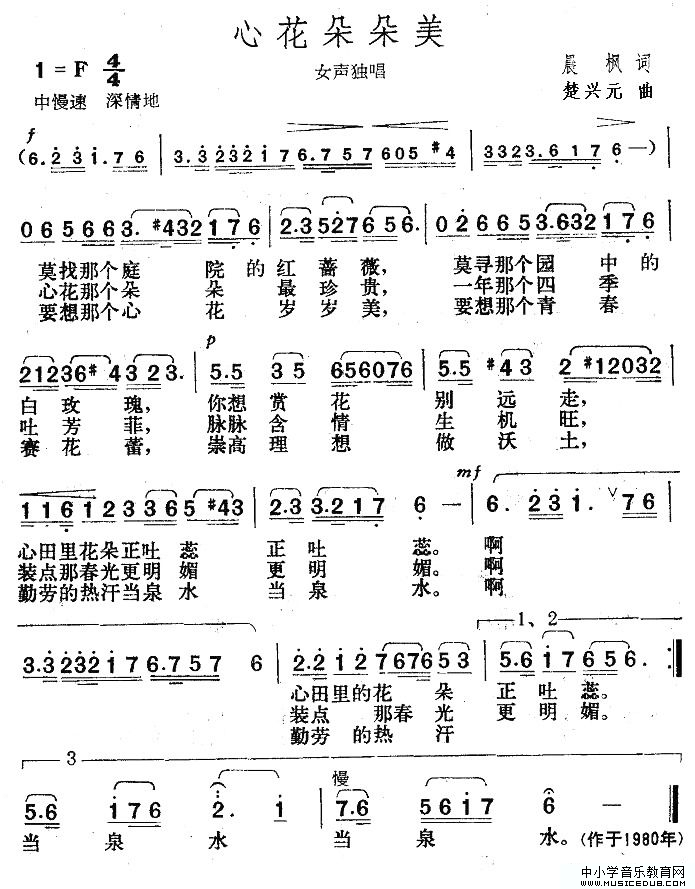 心花朵朵美
1=F 4/4
女声独唱
晨枫词
中慢速 深情地
楚兴元曲
f
(6.231.76 | 3.3232176.757605#4 | 3323.6176—) |
065663.#432176 | 2.3576656. | 0266653.632176
莫找那个庭院的红蔷薇,莫寻那个园中的
心花那个朵朵最珍贵,一年那个四季
要想那个心花岁岁美,要想那个青春
p
21236#4323. | 5.535656076 | 5.5#432#12032
白玫瑰,你想赏花别远走,
吐芳菲,脉脉含情生机旺,
赛花蕾,崇高理想做沃土,
mf
116123365#43 | 2.33.2176— | 6.231.V76
心田里花朵正吐蕊正吐蕊。啊
装点那春光更明媚更明媚。啊
勤劳的热汗当泉水当泉水。啊
1、2
3.3232176.7576 | 2.212767653 | 5.617656. :||
心田里的花朵正吐蕊。
装点那春光更明媚。
勤劳的热汗
3
慢
5.61762.1 | 7.656176— ||
当泉水当泉水。(作于1980年)
中小学音乐教育网
WWW.MUSICEDUB.COM